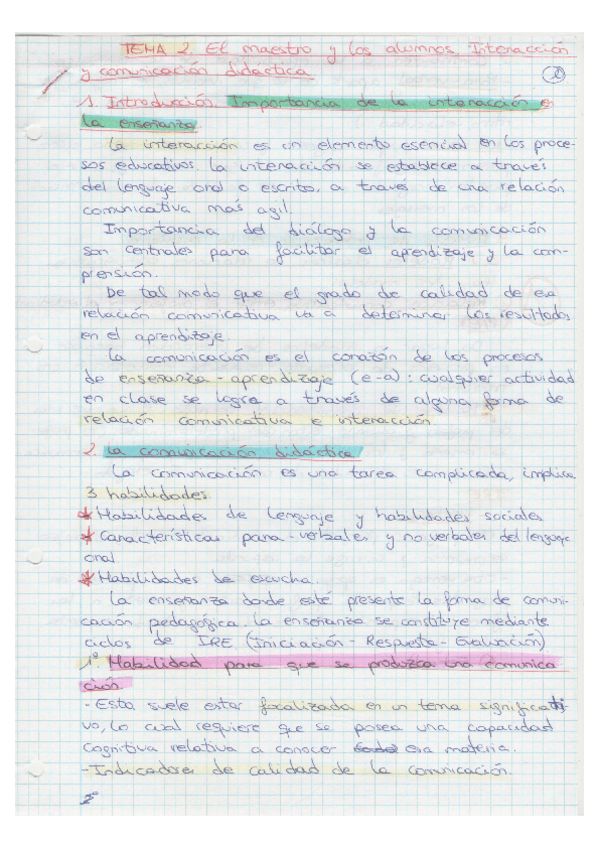 TEMA 2. El maestro y los alumnos. Interacción
y comunicación didáctica
1. Introducción. Importancia de la interacción en
la enseñanza
La interacción es un elemento esencial en los proce-
sos educativos. La interacción se establece a través
del lenguaje oral o escrito, a través de una relación
comunicativa más agil.
Importancia del diálogo y la comunicación
son centrales para facilitar el aprendizaje y la com-
prensión.
De tal modo que el grado de calidad de esa
relación comunicativa va a determinar los resultados
en el aprendizaje.
La comunicación es el corazón de los procesos
de enseñanza-aprendizaje (e-a): cualquier actividad
en clase se logra a través de alguna forma de
relación comunicativa e interacción.
2. La comunicación didáctica
La comunicación es una tarea complicada, implica
3 habilidades
* Habilidades de lenguaje y habilidades sociales
* Características para-verbales y no verbales del lenguaje
oral
* Habilidades de escucha.
La enseñanza donde esté presente la forma de comuni-
cación pedagógica. La enseñanza se constituye mediante
ciclos de IRE (Iniciación - Respuesta - Evaluación)
1º Habilidad para que se produzca una comunica
ción
- Esta suele estar focalizada en un tema significati
vo, lo cual requiere que se posea una capacidad
cognitiva relativa a conocer esa materia.
- Indicadores de calidad de la comunicación.